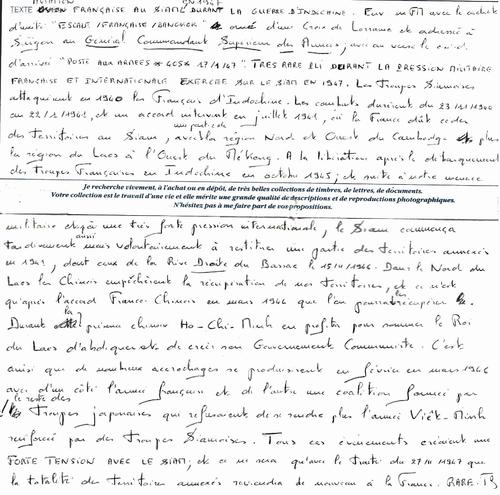 AVIATION EN 1947
TEXTE FRANÇAISE AU SIAM DURANT LA GUERRE D'INDOCHINE. Env en FM avec le cachet
d'unité "ESCALE FRANÇAISE BANGKOK" orné d'une Croix de Lorraine et adressée à
Saïgon au Général Commandant Supérieur des Armées, avec au verso le cachet
d'arrivée "POSTE AUX ARMEES 605X 17/1/47". TRES RARE PLI DURANT LA PRESSION MILITAIRE
FRANCAISE ET INTERNATIONALE EXERCEE SUR LE SIAM EN 1947. Les Troupes Siamoises
attaquèrent en 1940 les Français d'Indochine. Les combats durèrent du 23/11/1940
au 22/1/1941, et un accord intervint en juillet 1941, où la France dût céder
une partie de
des territoires au Siam, avec la région Nord et Ouest du Cambodge et plus
la région du Laos à l'Ouest du Mékong. A la libération après le débarquement
des Troupes Françaises en Indochine en octobre 1945, et suite à notre menace
Je recherche vivement, à l'achat ou en dépôt, de très belles collections de timbres, de lettres, de documents.
Votre collection est le travail d'une vie et elle mérite une grande qualité de descriptions et de reproductions photographiques.
N'hésitez pas à me faire part de vos propositions.
militaire et à une très forte pression internationale, le Siam commença
aussi
tardivement mais volontairement à restituer une partie des territoires annexés
en 1941, dont ceux de la Rive Droite du Bassac le 15/11/1946. Dans le Nord du
Laos les Chinois empêchèrent la récupération de nos territoires, et ce n'est
qu'après l'accord Franco-Chinois en mars 1946 que l'on pourra les récupérer.
Durant la présence chinoise Ho-Chi-Minh en profita pour sommer le Roi
du Laos d'abdiquer et de créer son Gouvernement Communiste. C'est
ainsi que de nombreux accrochages se produisirent en février en mars 1946
avec d'un côté l'armée française et de l'autre une coalition formée par
le reste des
Troupes japonaises qui refusèrent de se rendre plus l'armée Viêt-Minh
renforcé par des Troupes Siamoises. Tous ces évènements créèrent une
FORTE TENSION AVEC LE SIAM, et ce ne sera qu'avec le Traité du 27/11/1947 que
la totalité des territoires annexés reviendra de nouveau à la France. RARE. TB